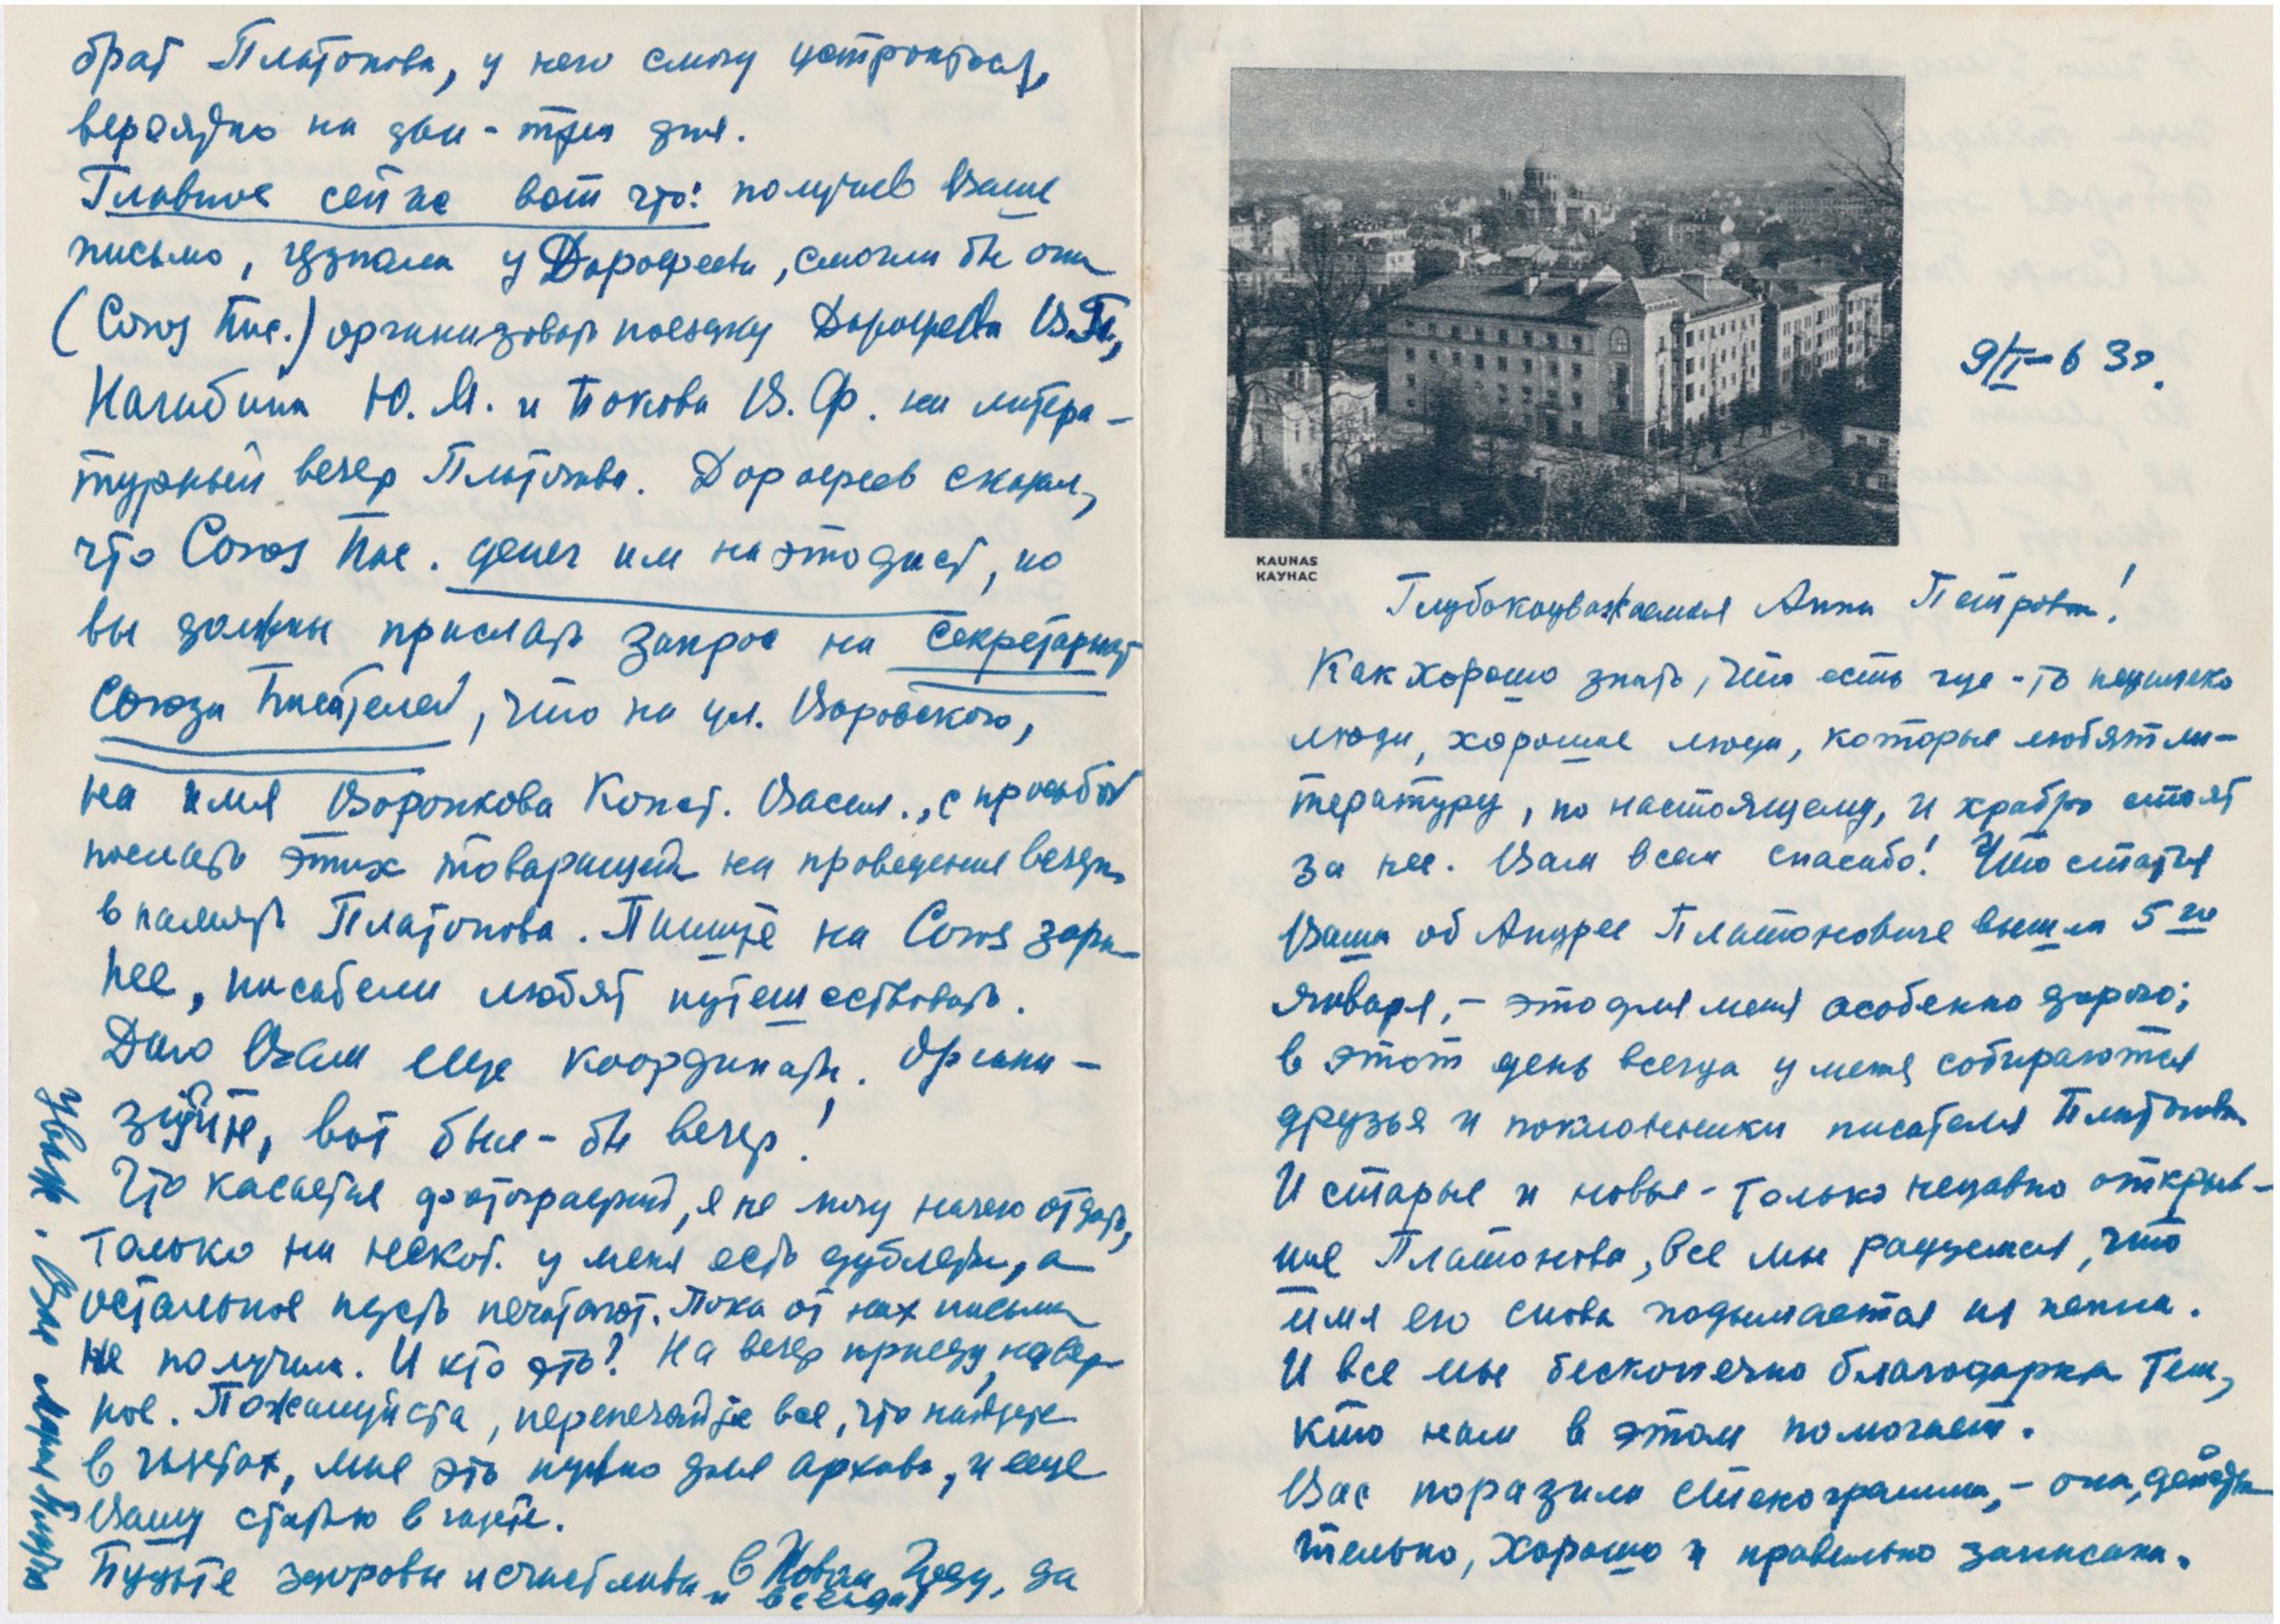 брат Платонова, у него смогу устроиться,
вероятно на два-три дня.
Главное сейчас вот что: получив Ваше
письмо, узнала у Дорофеева, смогли бы они
(Союз Пис.) организовать поездку Дорофеева В.П.,
Нагибина Ю.М. и Бокова В.Ф. на литера-
турный вечер Платонова. Дорофеев сказал,
что Союз Пис. денег им на это даст, но
вы должны прислать запрос на секретариат
Союза Писателей, что на ул. Воровского,
на имя Воронкова Конст. Васил., с просьбой
послать этих товарищей на проведение вечера
в память Платонова. Пишите на Союз зара-
нее, писатели любят путешествовать.
Даю Вам еще координаты. Органи-
зуйте, вот был-бы вечер!
Что касается фотографий, я не могу ничего отдать,
только на некот. у меня есть дублеты, а
остальное пусть печатают. Пока от них письма
не получила. И кто это? На вечер приеду, навер-
ное. Пожалуйста, перепечатайте все, что найдете
в газетах, мне это нужно для архива, и еще
Вашу статью в газете.
Будьте здоровы и счастливы в Новом Году, да
и всегда!
Уваж. Вас Мария Платонова
KAUNAS
КАУНАС
9/I-63г.
Глубокоуважаемая Анна Петровна!
Как хорошо знать, что есть где-то недалеко
люди, хорошие люди, которые любят ли-
тературу, по настоящему, и храбро стоят
за нее. Вам всем спасибо! Что статья
Ваша об Андрее Платоновиче вышла 5го
января, - это для меня особенно дорого;
в этот день всегда у меня собираются
друзья и поклонники писателя Платонова
И старые и новые - только недавно открыв-
шие Платонова, все мы радуемся, что
имя его снова подымается из пепла.
И все мы бесконечно благодарны тем,
кто нам в этом помогает.
Вас поразила стенограмма, - она, действи-
тельно, хорошо и правильно записана.